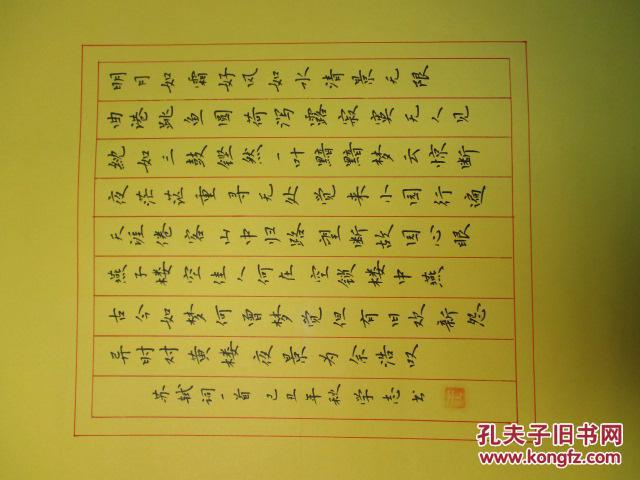 明月如霜好风如水清景无限
曲港跳鱼圆荷泻露寂寞无人见
𬘘如三鼓铿然一叶黯黯梦云惊断
夜茫茫重寻无处觉来小园行遍
天涯倦客山中归路望断故园心眼
燕子楼空佳人何在空锁楼中燕
古今如梦何曾梦觉但有旧欢新怨
异时对黄楼夜景为余浩叹
苏轼词一首己丑年秋学志书
孔夫子旧书网
www.kongfz.com